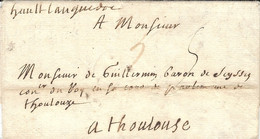 haut Languedoc
A Monsieur
2
Monsieur de Guillermin Baron de Seysses
con.er du Roy en sa cour de
thoulouze
a thoulouse